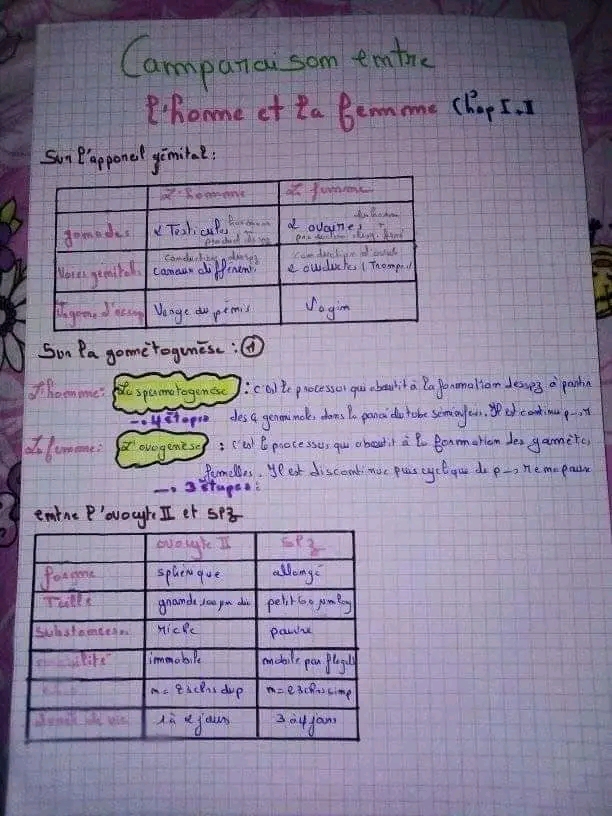 Comparaison entre
l'homme et la femme Chap I.I
Sur l'appareil génital:
L'homme La femme
gonades 2 Testicules 2 ovaires
Voies génitales conduction d'ovule
canaux différent. 2 oviductes (Trompes)
Verge du pénis Vagin
Sur la gamétogenèse: 1
L'homme: La spermatogenèse : c'est le processus qui aboutit à la formation des spz à partir
→ 4 étapes des germinales dans la paroi du tube séminifère. Il est continu
La femme: L'ovogenèse : c'est le processus qui aboutit à la formation des gamètes
femelles. Il est discontinue puis cyclique de p→
→ 3 étapes:
entre l'ovocyte II et SPZ
ovocyte II SPZ
forme sphérique allongé
Taille grande 100 µm petit 60 µm
Substances riche pauvre
immobile mobile par flagelle
n= 23chrs dup n= 23chrs simp
1 à 2 jours 3 à 4 jours